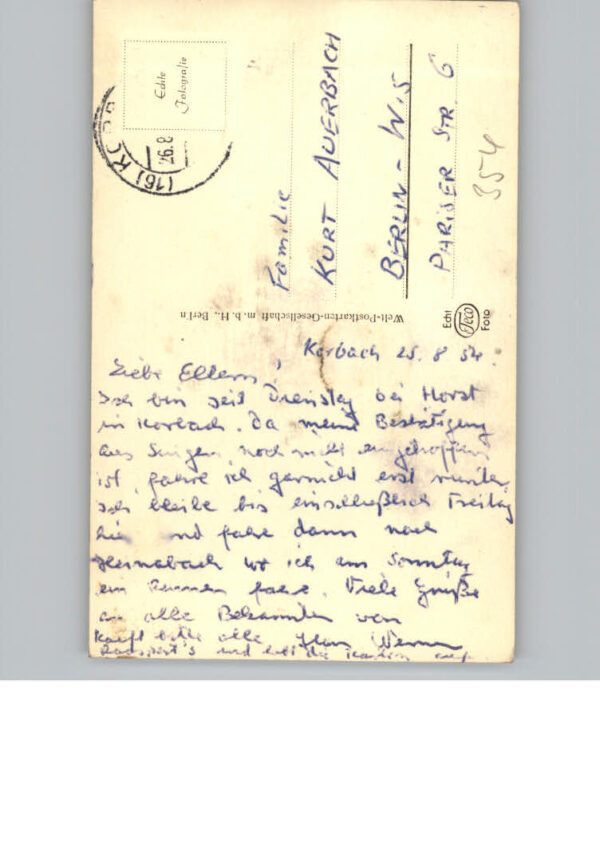 Echte
Fotografie
(16) KO
26.8
Familie
KURT AUERBACH
BERLIN-W.15
PARISER STR. 6
354
Welt-Postkarten-Gesellschaft m. b. H., Berlin
Echt
Teco
Foto
Korbach 25. 8. 54.
Liebe Eltern!
Ich bin seit Dienstag bei Horst
in Korbach. Da meine Bestätigung
aus Singen noch nicht eingetroffen
ist, fahre ich garnicht erst runter,
ich bleibe bis einschließlich Freitag
hier und fahre dann nach
wo ich am Sonntag
ein Rennen fahre. Viele Grüße
an alle Bekannten von
Werner
Kauft bitte alle
und hebt die Karten auf